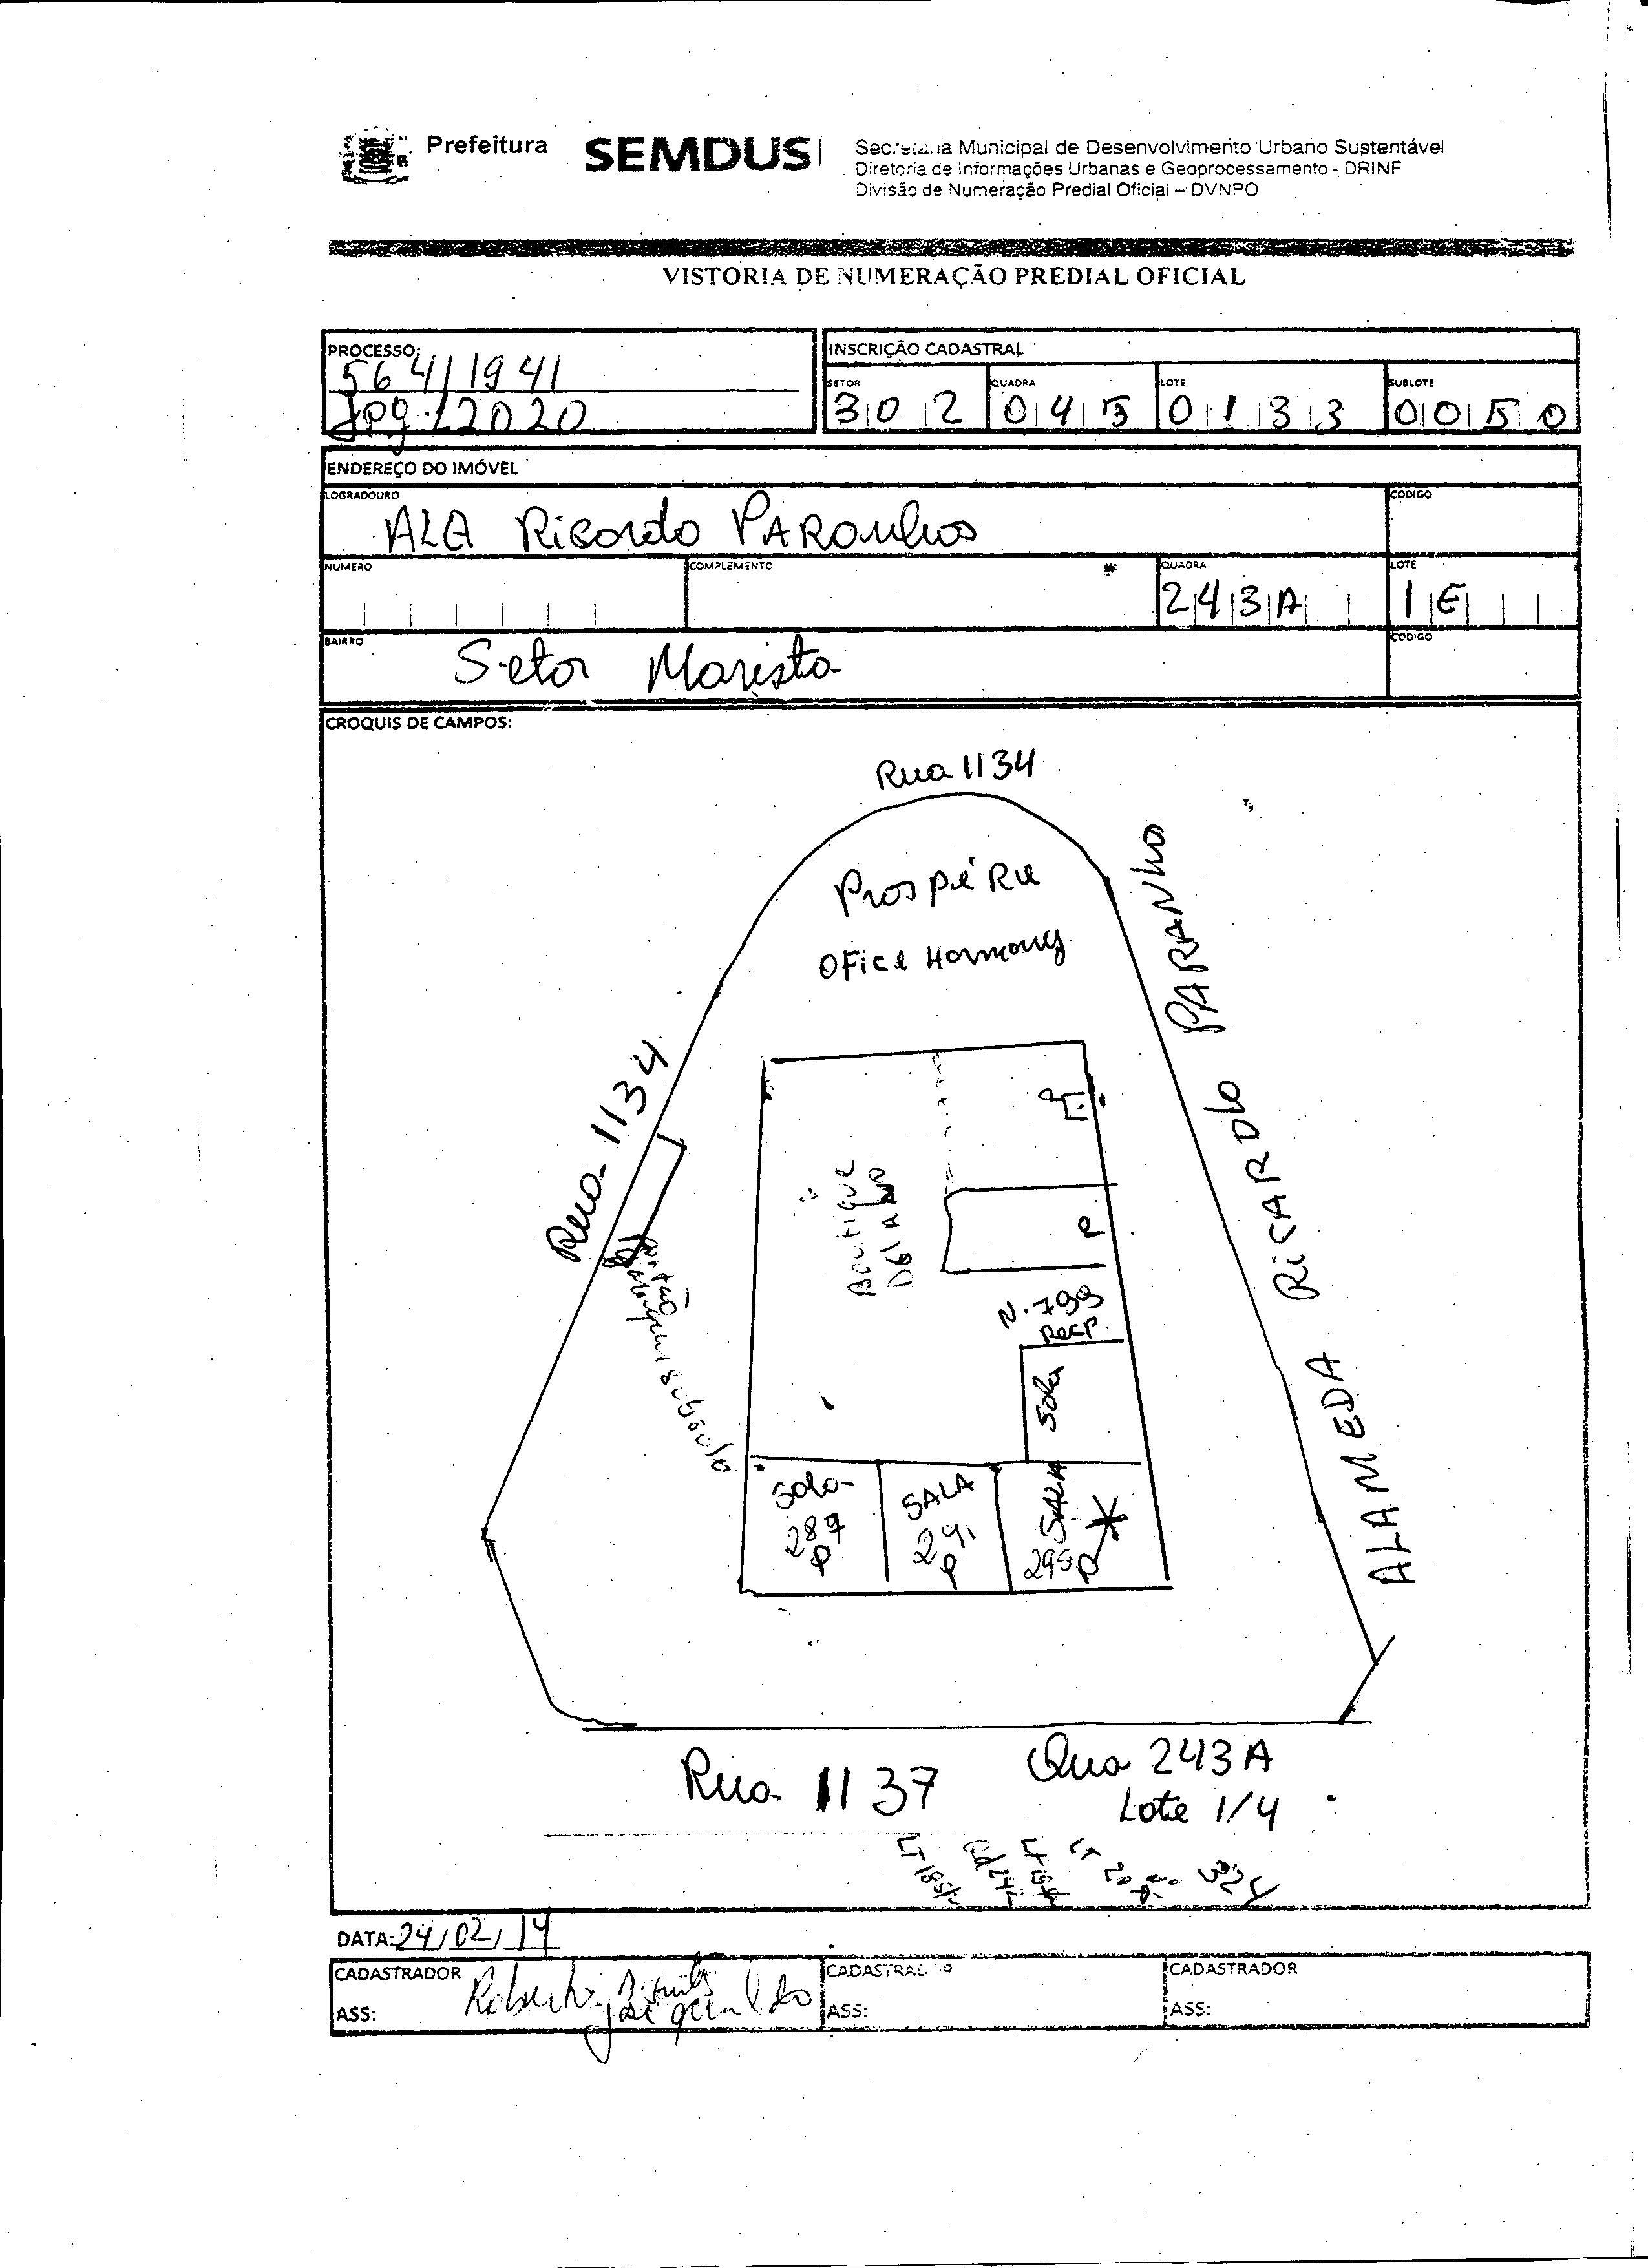 Prefeitura SEMDUS
Secretaria Municipal de Desenvolvimento Urbano Sustentável
Diretoria de Informações Urbanas e Geoprocessamento - DRINF
Divisão de Numeração Predial Oficial – DVNPO
VISTORIA DE NUMERAÇÃO PREDIAL OFICIAL
PROCESSO:
56411941
Jpg. 12020
INSCRIÇÃO CADASTRAL
SETOR QUADRA LOTE SUBLOTE
302 045 0133 0050
ENDEREÇO DO IMÓVEL
LOGRADOURO CODIGO
ALA Ricardo PARanhos
NUMERO COMPLEMENTO QUADRA LOTE
243A 1E
BAIRRO CODIGO
Setor Marista
CROQUIS DE CAMPOS:
Rua 1134
Prospére
OFice Harmony
Rua 1134
ALAMEDA RiCARDo PARANho
Boutique
portão
subsolo
P
N. 799
Recp.
Sala
Sala
287
P
SALA
291
P
SALA
299
P
Rua 1137
Qua 243A
Lote 1/4
DATA: 24/02/14
CADASTRADOR CADASTRADOR CADASTRADOR
ASS: Roberto ASS: ASS: